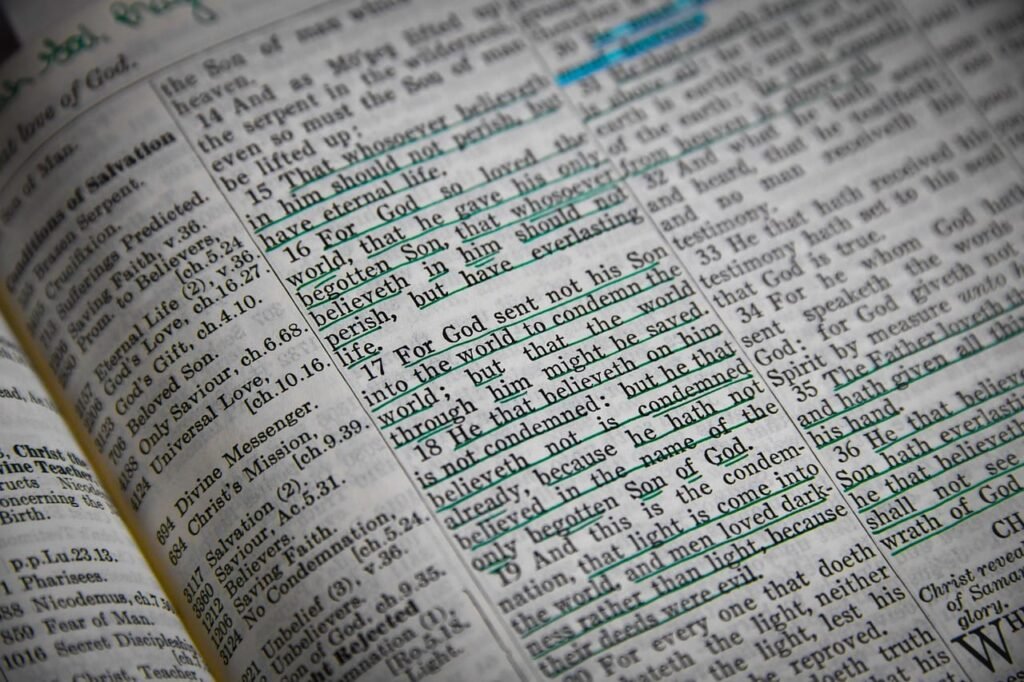 love of God.
Son of Man.
of Salvation
Brazen Serpent.
Crucifixion.
Sufferings Predicted.
Saving Faith, v.36.
Prom. to Believers,
Eternal Life (2), v.36 [ch.5.24
God's Love, ch.16.27.
God's Gift, ch.4.10.
Beloved Son.
Only Saviour, ch.6.68.
Universal Love,
[ch.10.16.
694 Divine Messenger.
684 Christ's Mission,
[ch.9.39.
3117 Salvation (2),
3360 Saviour, Ac.5.31.
1212 Believers.
1206 Saving Faith.
3124 No Condemnation,
[ch.5.24.
Unbelief (3), v.36.
Unbelievers.
Son of God, ch.9.35.
Rejected
(1),
[Ro.5.18.
Light.
the Son of man which
heaven.
14 And as Mo'ses lifted up
the serpent in the wilderness,
even so must the Son of man
be lifted up:
15 That whosoever believeth
in him should not perish, but
have eternal life.
16 For God so loved the
world, that he gave his only
begotten Son, that whosoever
believeth in him should not
perish, but have everlasting
life.
17 For God sent not his Son
into the world to condemn the
world; but that the world
through him might be saved.
18 He that believeth on him
is not condemned: but he that
believeth not is condemned
already, because he hath not
believed in the name of the
only begotten Son of God.
19 And this is the condem-
nation, that light is come into
the world, and men loved dark-
ness rather than light, because
their deeds were evil.
20 For every one that doeth
hateth the light, neither
the light, lest his
be reproved.
doeth truth
that his
30
31 He that cometh
is above all: he that is
earth is earthly, and speaketh
of the earth: he that cometh
from heaven is above all.
32 And what he hath seen
and heard, that he testifieth;
and no man receiveth his
testimony.
33 He that hath received his
testimony hath set to his seal
that God is true.
34 For he whom God hath
sent speaketh the words
God: for God giveth not
Spirit by measure unto
35 The Father loveth the
and hath given all thin
his hand.
36 He that believe
Son hath everlastin
he that believeth
shall not see
wrath of God
CH
Christ revea
of Samar
glory.
WH
Christ the
vine Teacher
ructs Nicode
oncerning the
Birth.
p.p.Lu.23.13.
1 Pharisees.
88 Nicodemus, ch.7.50
859 Fear of Man.
1016 Secret Disciples
Christ, Teacher,